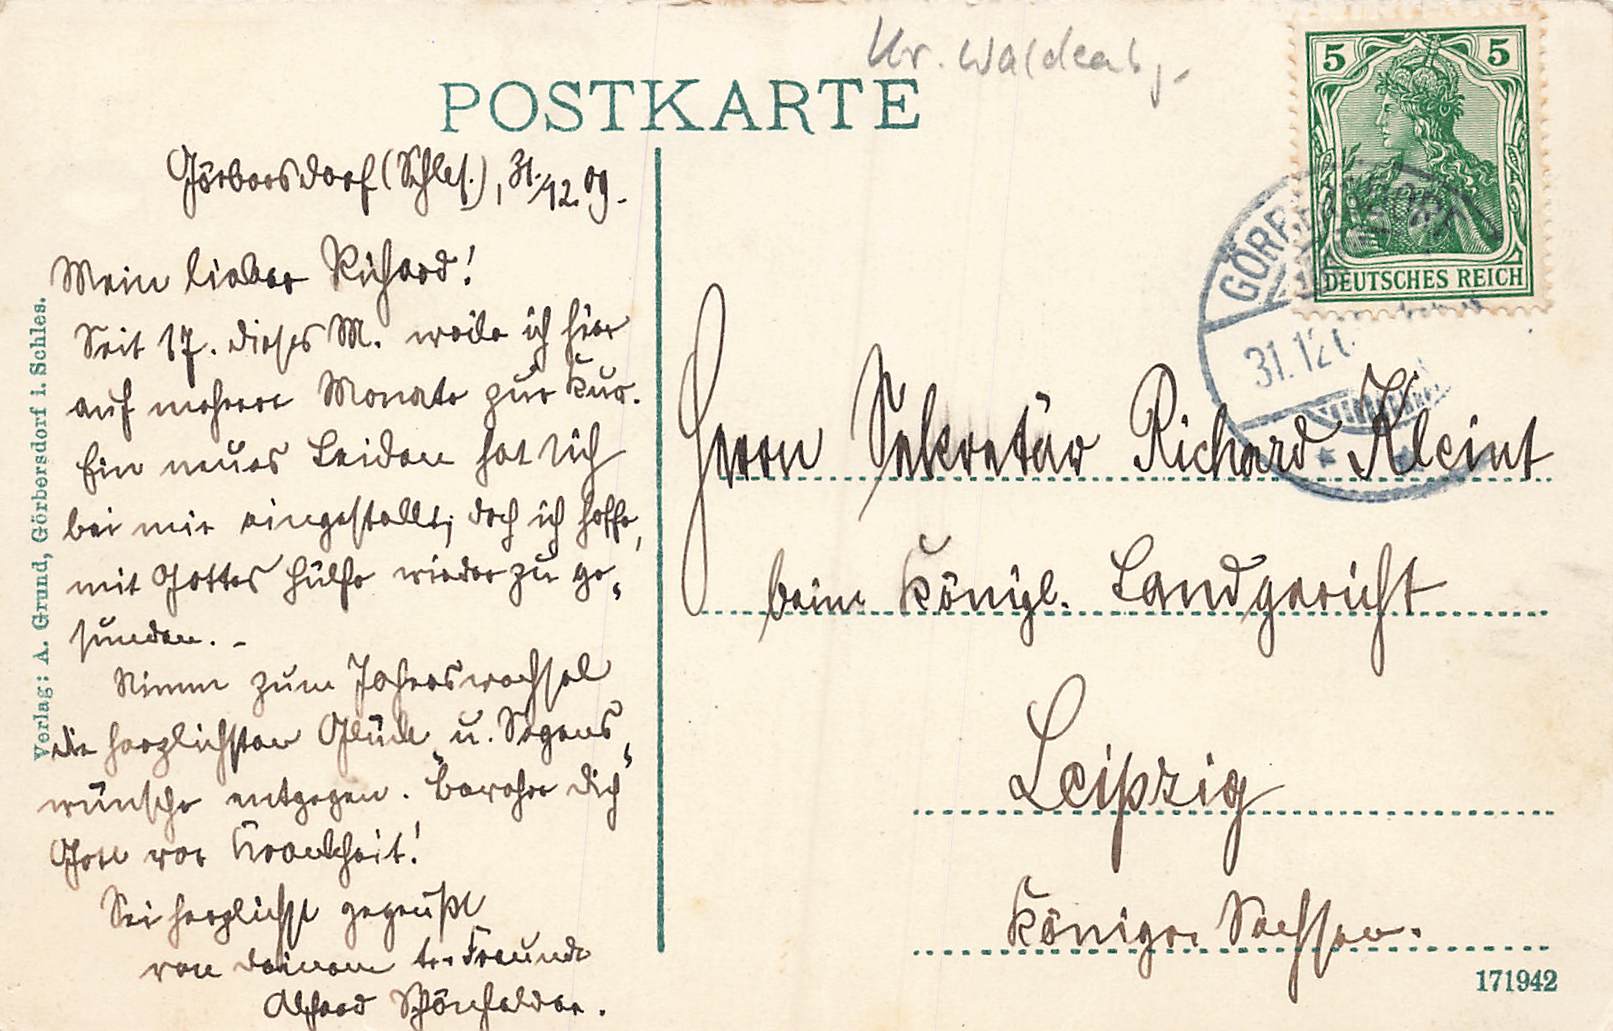 Kr. Waldenbg.
POSTKARTE
5 5
DEUTSCHES REICH
GÖRBERSDORF
31.12.0
Görbersdorf (Schles.), 31./12. 09.
Mein lieber Richard!
Seit 17. dieses M. weile ich hier
auf mehrere Monate zur Kur.
Ein neues Leiden hat sich
bei mir eingestellt; doch ich hoffe,
mit Gottes Hülfe wieder zu ge-
sunden. -
Nimm zum Jahreswechsel
die herzlichsten Glück u. Segens-
wünsche entgegen. Bewahre Dich
Gott vor Krankheit!
Sei herzlichst gegrüßt
von deinem tr. Freunde
Alfred Schönfelder.
Herrn Sekretär Richard Kleint
beim Königl. Landgericht
Leipzig
Königr. Sachsen.
Verlag: A. Grund, Görbersdorf i. Schles.
171942